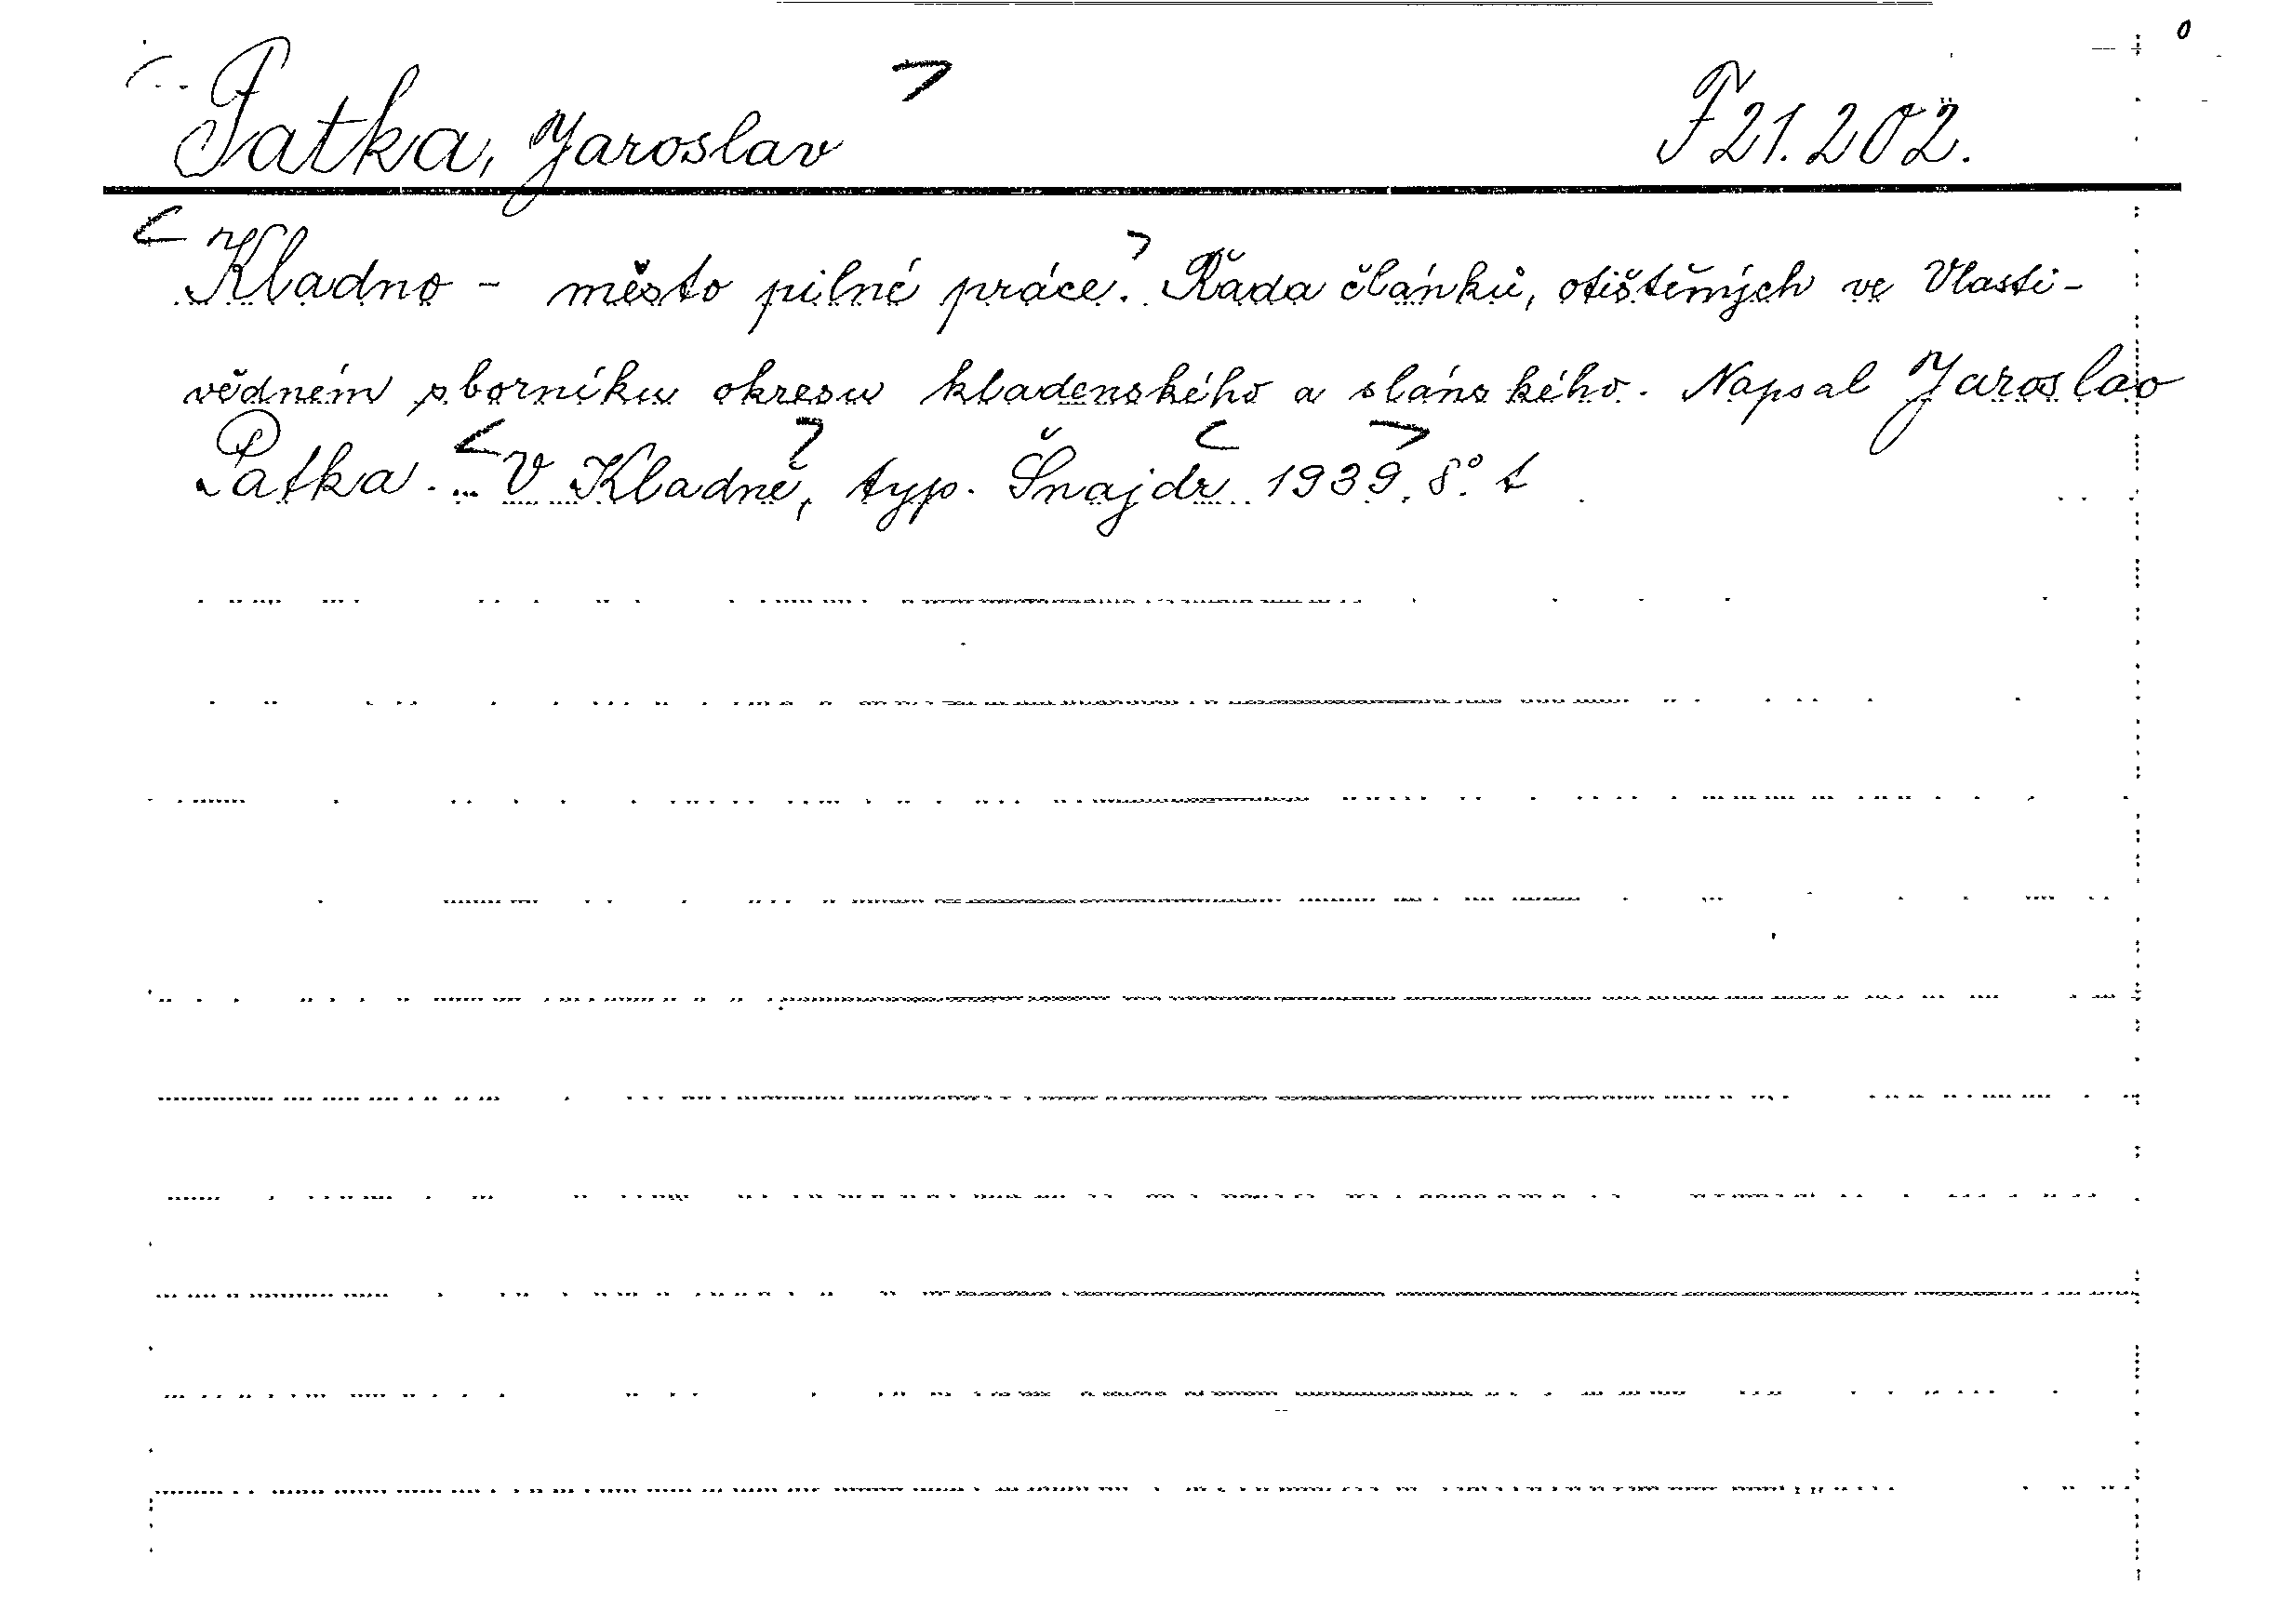 Patka, Jaroslav F 21.202.
Kladno - město pilné práce. Řada článků, otištěných ve Vlasti-
vědném sborníku okresu kladenského a slánského. Napsal Jaroslav
Patka. V Kladně, typ. Šnajdr 1939. 8°.